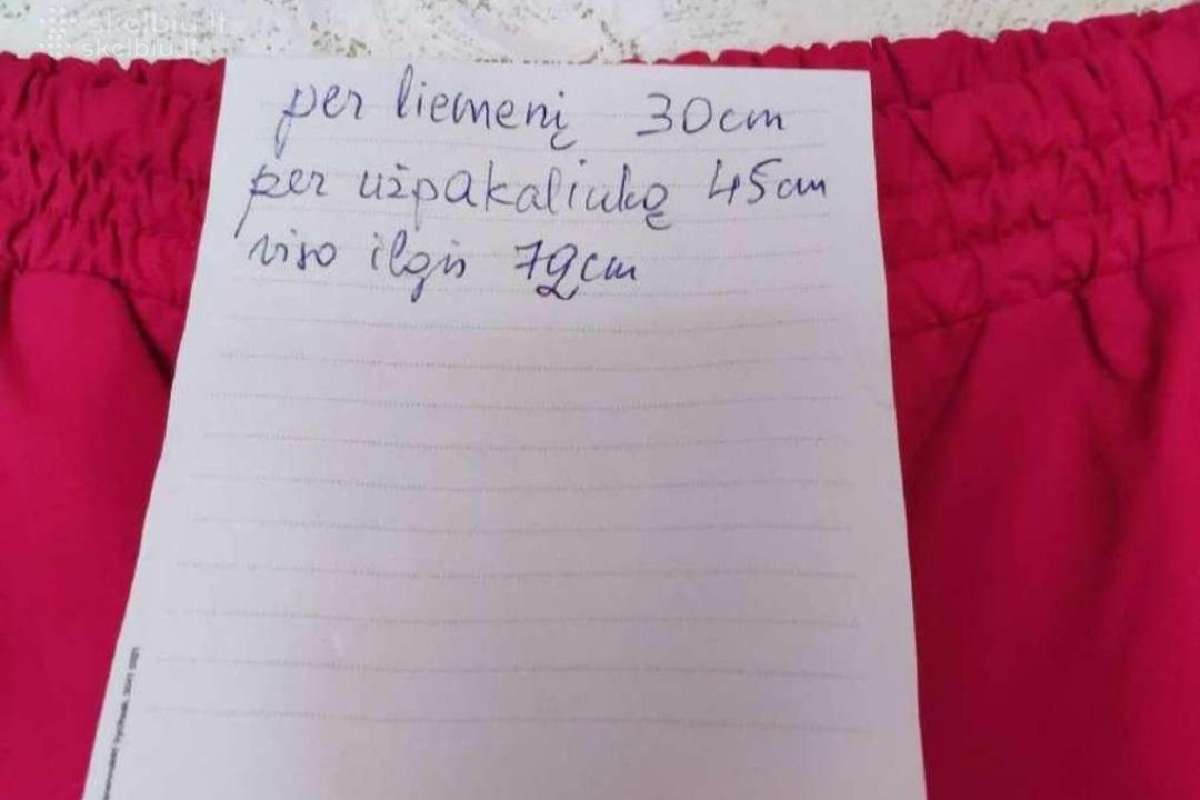 skelbiu.lt
skelbiu.lt
per liemenį 30cm
per užpakaliuką 45cm
viso ilgis 72cm